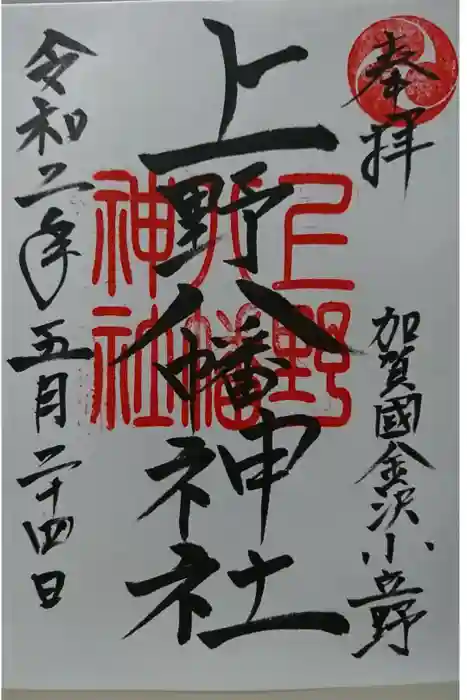 奉拝
加賀國金沢小立野
上野八幡神社
上野
八幡
神社
令和二年五月二十四日